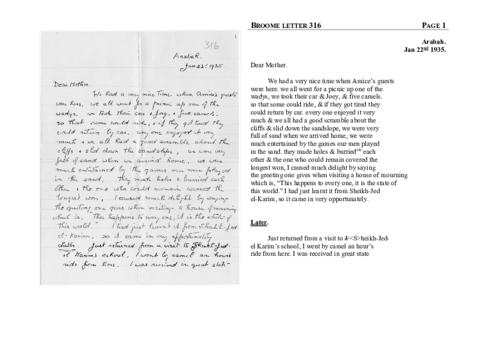 316
Arabah.
Jan 22nd 1935.
Dear Mother.
We had a very nice time when Amice's guests
were here, we all went for a picnic up one of the
wadys, we took their car & Joey, & five camels.
so that some could ride, & if they got tired they
could return by car. every one enjoyed it very
much & we all had a good scramble about the
cliffs & slid down the sandslope, we were very
full of sand when we arrived home, we were
much entertained by the games our men played
in the sand. they made holes & burried each
other & the one who could remain covered the
longest won, I caused much delight by saying
the greeting one gives when visiting a house of mourning
which is, "This happens to every one, it is the state of
this world." I had just learnt it from Sheikh-Jed-
el-Karim, so it came in very opportunely.
Later. Just returned from a visit to Sheikh-Jed-
el Karim's school, I went by camel an hours
ride from here. I was received in great state
BROOME LETTER 316 PAGE 1
Arabah.
Jan 22nd 1935.
Dear Mother.
We had a very nice time when Amice's guests
were here. we all went for a picnic up one of the
wadys, we took their car & Joey, & five camels.
so that some could ride, & if they got tired they
could return by car. every one enjoyed it very
much & we all had a good scramble about the
cliffs & slid down the sandslope, we were very
full of sand when we arrived home, we were
much entertained by the games our men played
in the sand. they made holes & burried each
other & the one who could remain covered the
longest won, I caused much delight by saying
the greeting one gives when visiting a home of mourning
which is, "This happens to every one, it is the state of
this world." I had just learnt it from Sheikh-Jed
el-Karim, so it came in very opportunely.
Later.
Just returned from a visit to <S>heikh-Jed-
el Karim's school, I went by camel an hour's
ride from here. I was received in great state